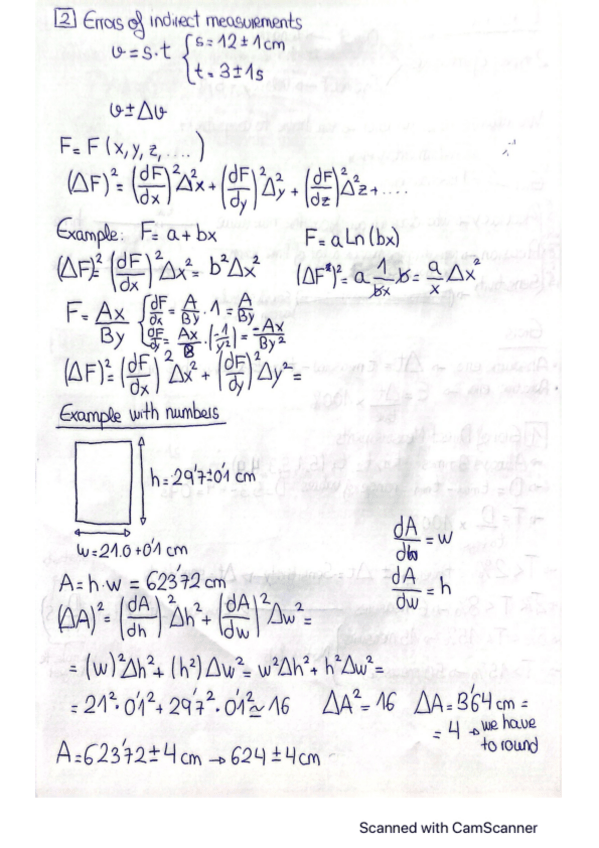 2 Errors of indirect measurements
v = s·t { s = 12 ± 1 cm
t = 3 ± 1 s
v ± Δv
F = F(x, y, z, ....)
(ΔF)² = (dF/dx)² Δ²x + (dF/dy)² Δ²y + (dF/dz)² Δ²z + ....
Example: F = a + bx
F = a Ln(bx)
(ΔF)² = (dF/dx)² Δx² = b² Δx²
(ΔF²)² = a 1/bx b = a/x Δx
F = Ax/By { dF/dx = A/By · 1 = A/By
dF/dy = Ax/B · (-1/y²) = -Ax/By²
(ΔF)² = (dF/dx)² Δx² + (dF/dy)² Δy² =
Example with numbers
h = 29'7 ± 0'1 cm
w = 21.0 + 0'1 cm
dA/dh = w
dA/dw = h
A = h·w = 623'72 cm
(ΔA)² = (dA/dh)² Δh² + (dA/dw)² Δw² =
= (w)² Δh² + (h²) Δw² = w² Δh² + h² Δw² =
= 21² · 0'1² + 29'7² · 0'1² ≃ 16 ΔA² = 16 ΔA = 3'64 cm =
= 4 → we have
to round
A = 623'72 ± 4 cm → 624 ± 4 cm
Scanned with CamScanner